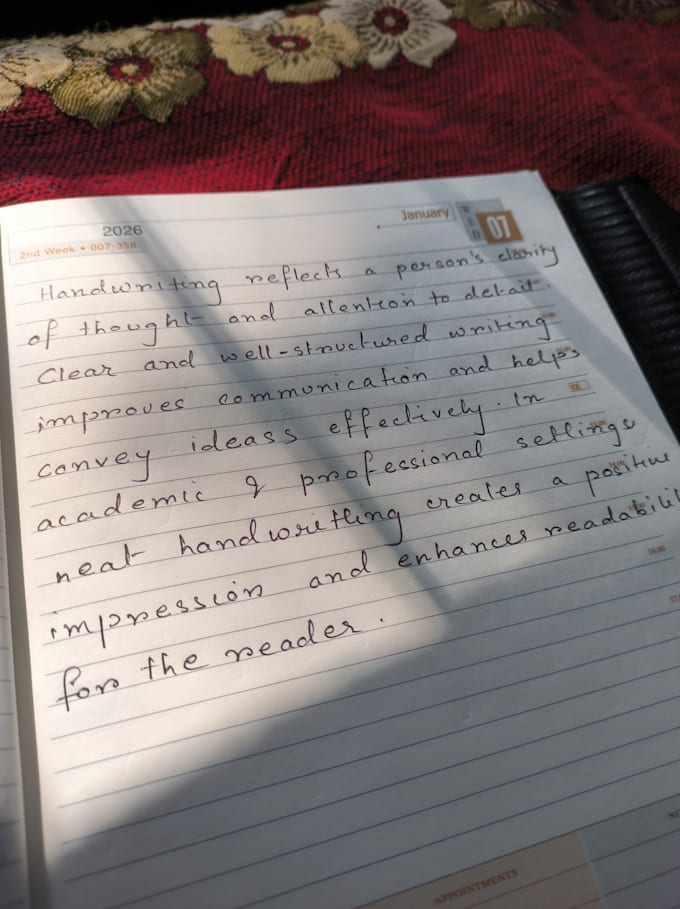 2026
January
WED
07
2nd Week • 007-358
Handwriting reflects a person's clarity
of thought and attention to detail.
Clear and well-structured writing
improves communication and helps
convey ideass effectively. In
academic & professional settings
neat handwritting creates a positive
impression and enhances readabilit
for the reader.
16:00
APPOINTMENTS